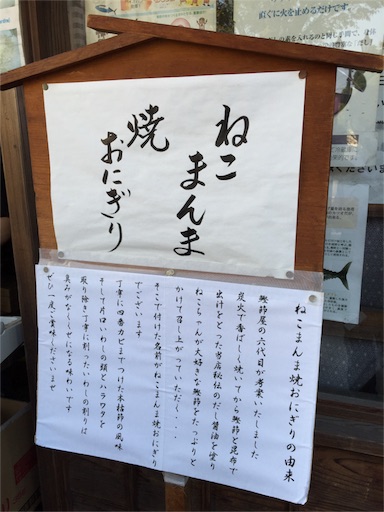 直ぐに火を止めるだけです。
ねこ
まんま
焼
おにぎり
ねこまんま焼おにぎりの由来
鰹節屋の六代目が考案いたしました
炭火で香ばしく焼いてから鰹節と昆布で
出汁をとった当店秘伝のだし醤油を塗り
ねこちゃんが大好きな鰹節をたっぷりと
かけて召し上がっていただく・・・・
そこで付けた名前がねこまんま焼おにぎり
でございます
丁寧に四番カビまでつけた本枯節の風味
そして片口いわしの頭とハラワタを
取り除き丁寧に割ったいわしの削りは
臭みがなくしゃになる味わいです
ぜひ一度ご賞味くださいませ